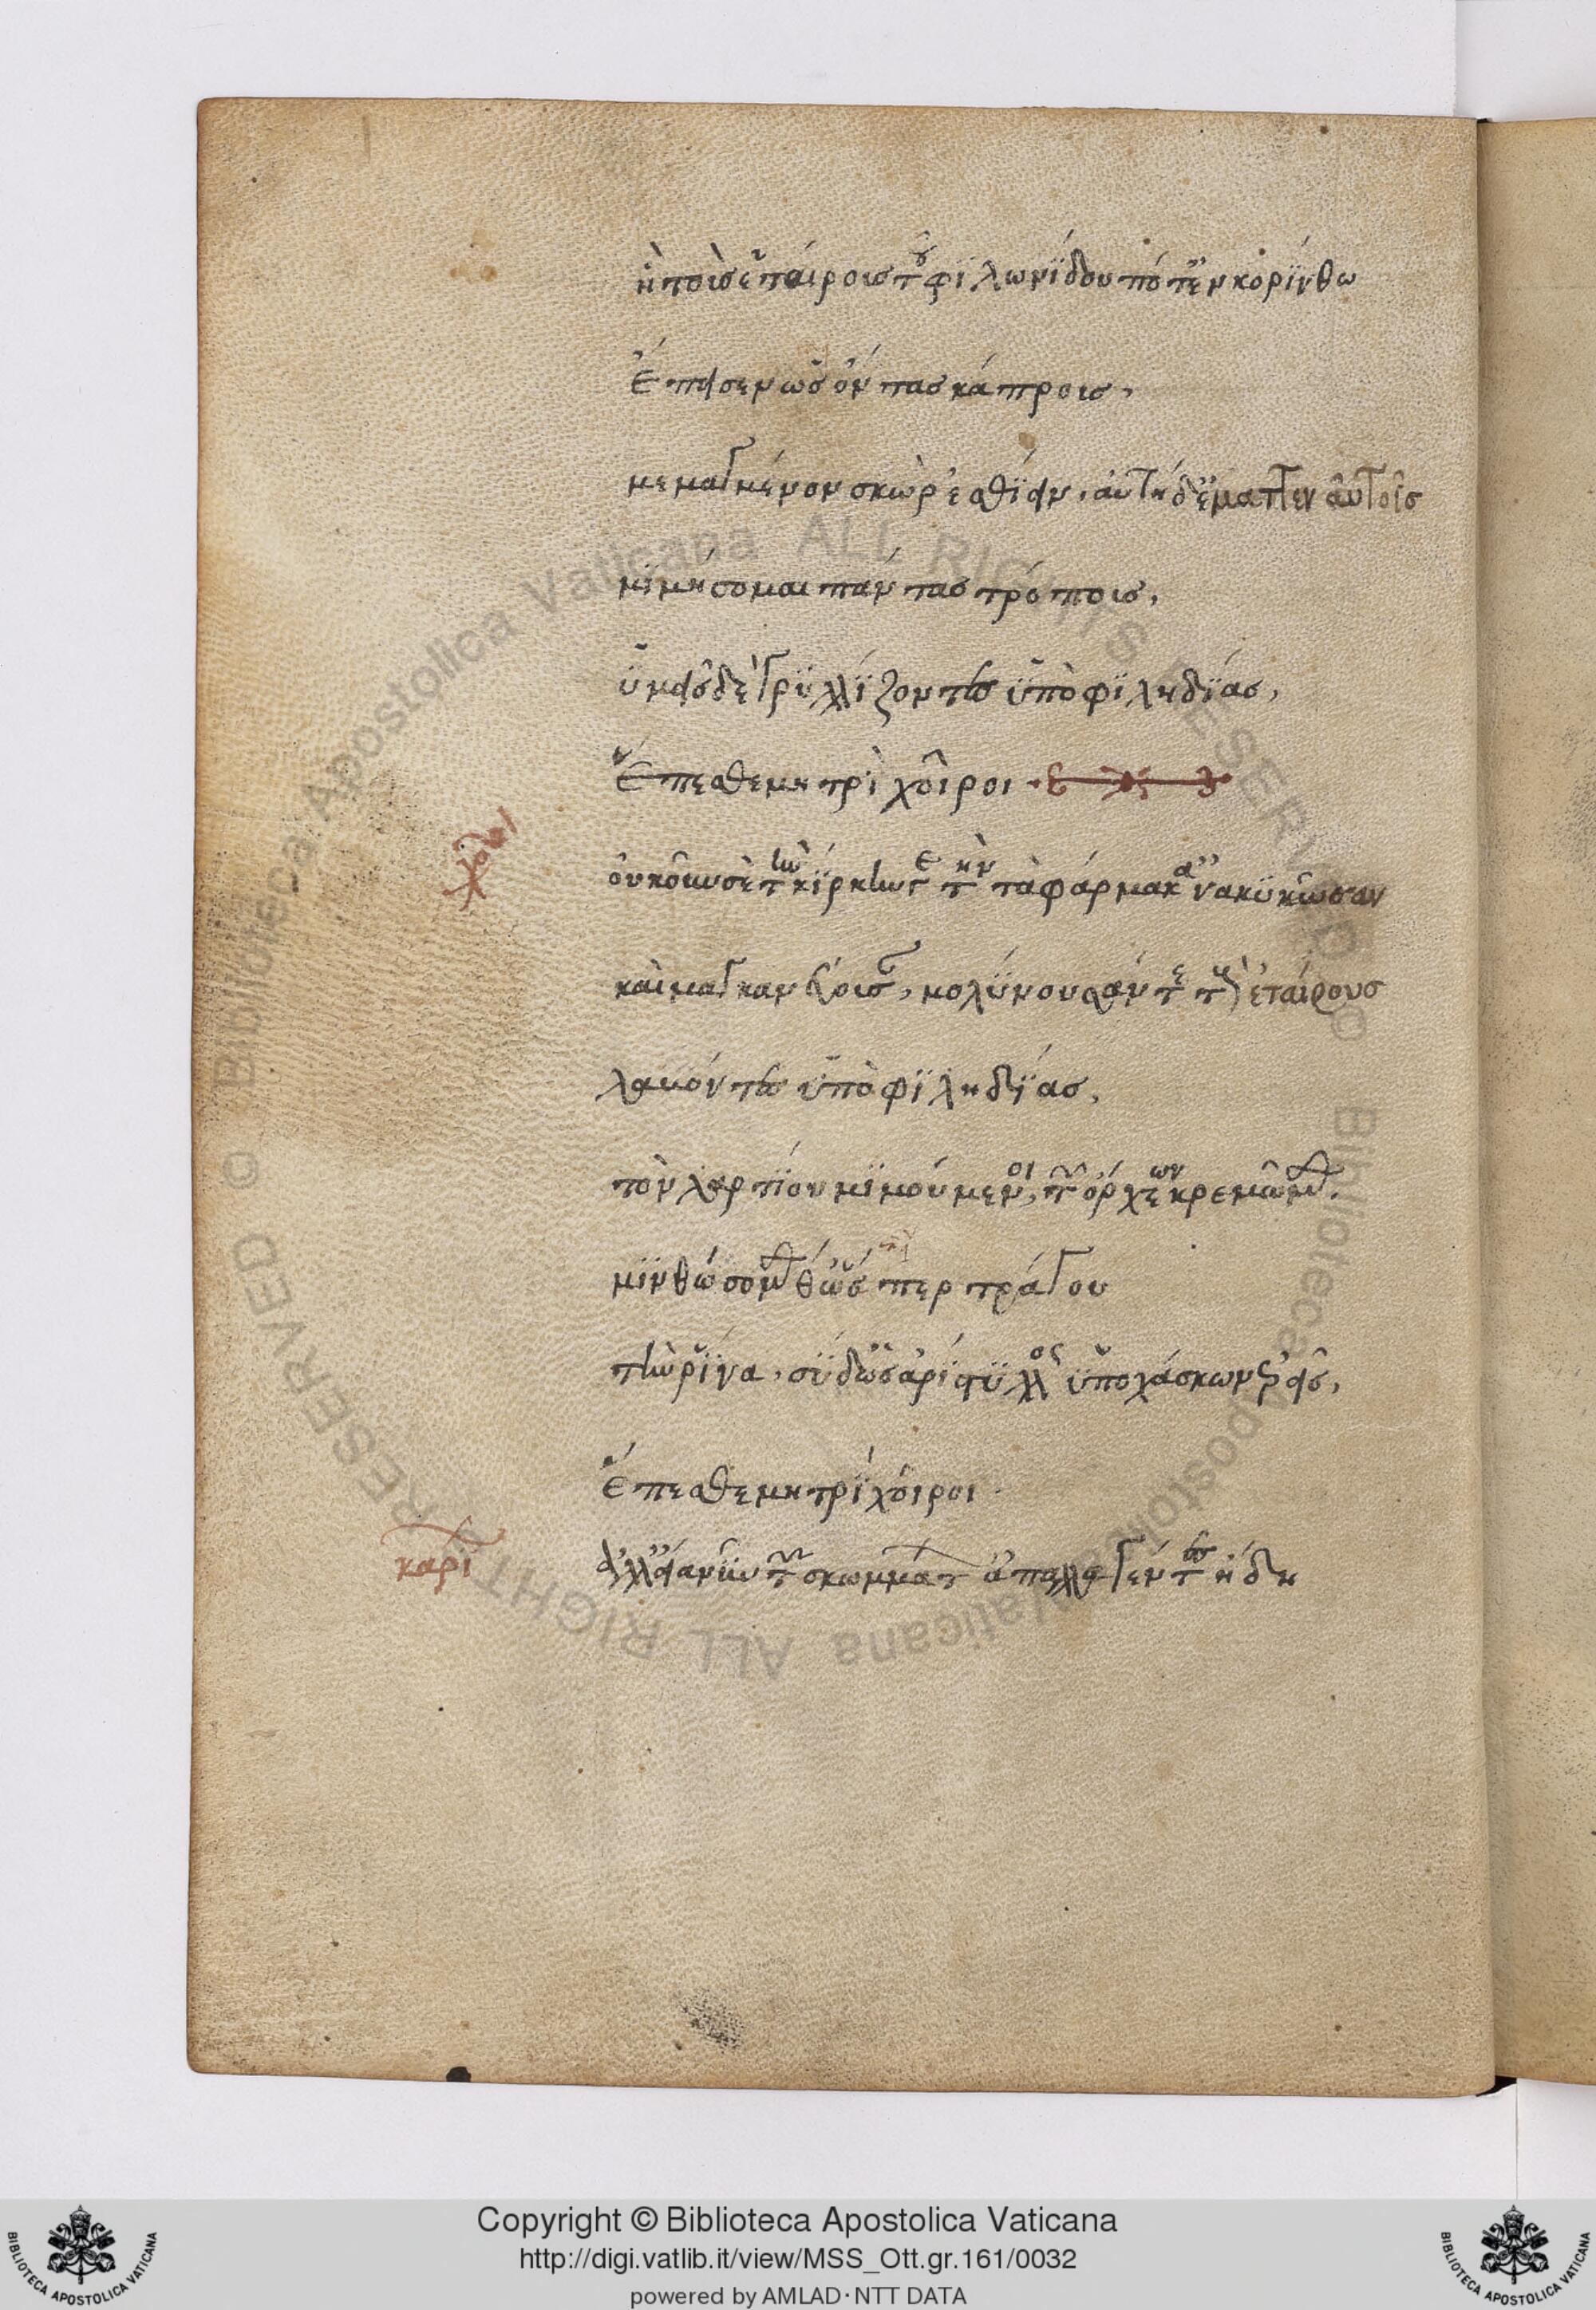 ἣ τοὺς ἑταίρους τοῦ φιλωνίδου ποτ' ἐν κορίνθω
ἔπεισεν ὡς ὄντας κάπρους,
μεμαγμένον σκῶρ ἐσθίειν, αὐτὴ δ' ἔματτεν αὐτοῖς
μιμήσομαι πάντας τρόπους,
ὑμεῖς δὲ γρυλλίζοντες ὑπὸ φιληδίας,
ἕπεσθε μητρὶ χοῖροι
χορὸς
οὐκοῦν σὲ τὴν κίρκην γε τὴν τὰ φάρμακ' ἀνακυκῶσαν
καὶ μαγγανεύουσαν, μολύνουσάν τε τοὺς ἑταίρους
λαβόντες ὑπὸ φιληδίας,
τὸν λαρτίου μιμούμενοι, τῶν ὄρχεων κρεμῶμεν.
μινθώσομέν θ' ὥσπερ τράγου
τὴν ῥῖνα, σὺ δ' ὡς ἀρίστυλλος ὑποχάσκων ἐρεῖς,
ἕπεσθε μητρὶ χοῖροι
καρί
ἀλλ' εἶα νῦν τῶν σκωμμάτων ἀπαλλαγέντες ἤδη
Copyright © Biblioteca Apostolica Vaticana
http://digi.vatlib.it/view/MSS_Ott.gr.161/0032
powered by AMLAD·NTT DATA
BIBLIOTECA APOSTOLICA VATICANA
BIBLIOTECA APOSTOLICA VATICANA